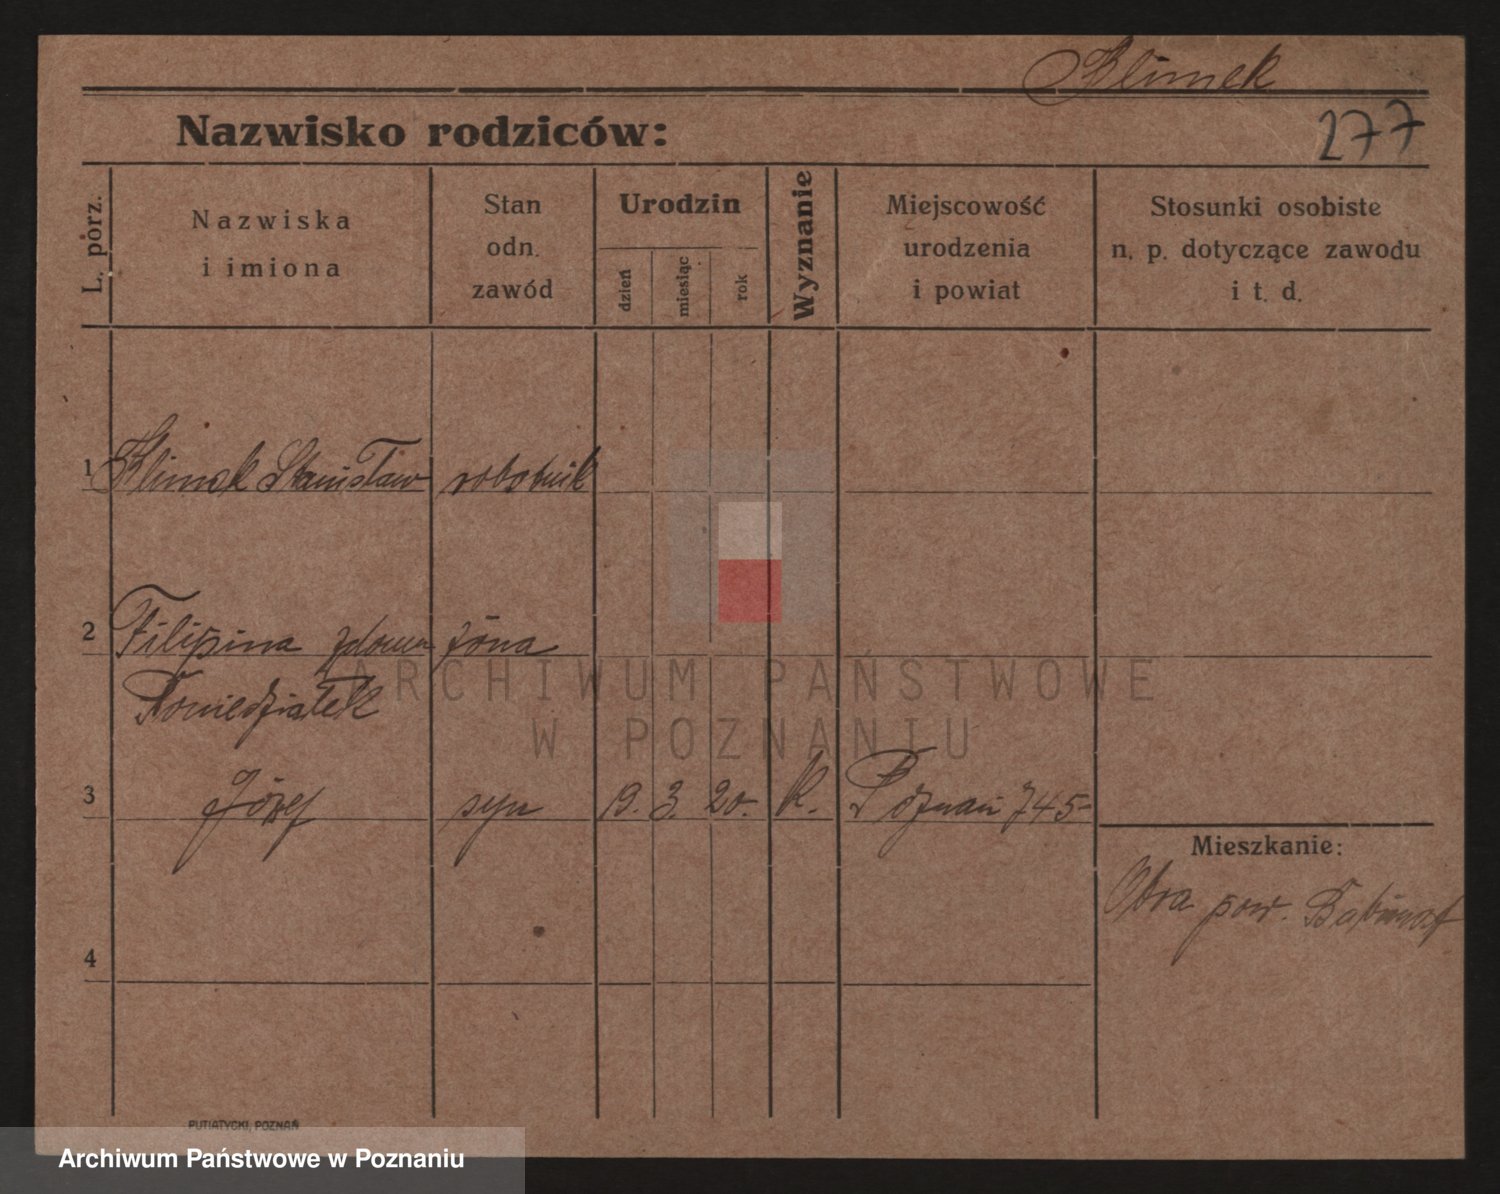 Klimek
Nazwisko rodziców:
277
L. porz.
Nazwiska
i imiona
Stan
odn.
zawód
Urodzin
dzień
miesiąc
rok
Wyznanie
Miejscowość
urodzenia
i powiat
Stosunki osobiste
n. p. dotyczące zawodu
i t. d.
1 Klimek Stanisław robotnik
2 Filipina zdomu żona
Poniedziałek
ARCHIWUM PAŃSTWOWE
W POZNANIU
3 Józef syn 19. 3. 20. K. Poznań 745
Mieszkanie:
Obra pow. Babimost
4
PUTIATYCKI, POZNAŃ
Archiwum Państwowe w Poznaniu